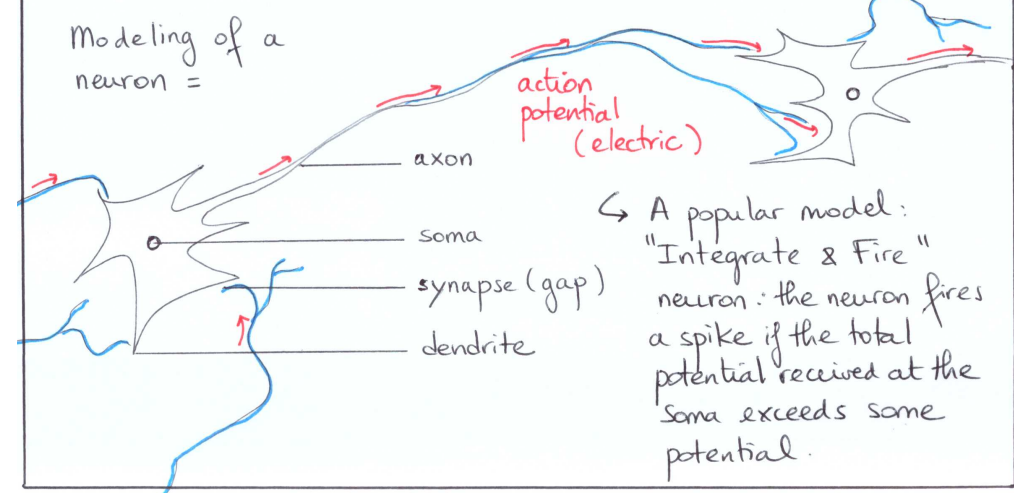 Modeling of a
neuron =
action
potential
(electric)
axon
soma
synapse (gap)
dendrite
↳ A popular model:
"Integrate & Fire"
neuron: the neuron fires
a spike if the total
potential received at the
soma exceeds some
potential.